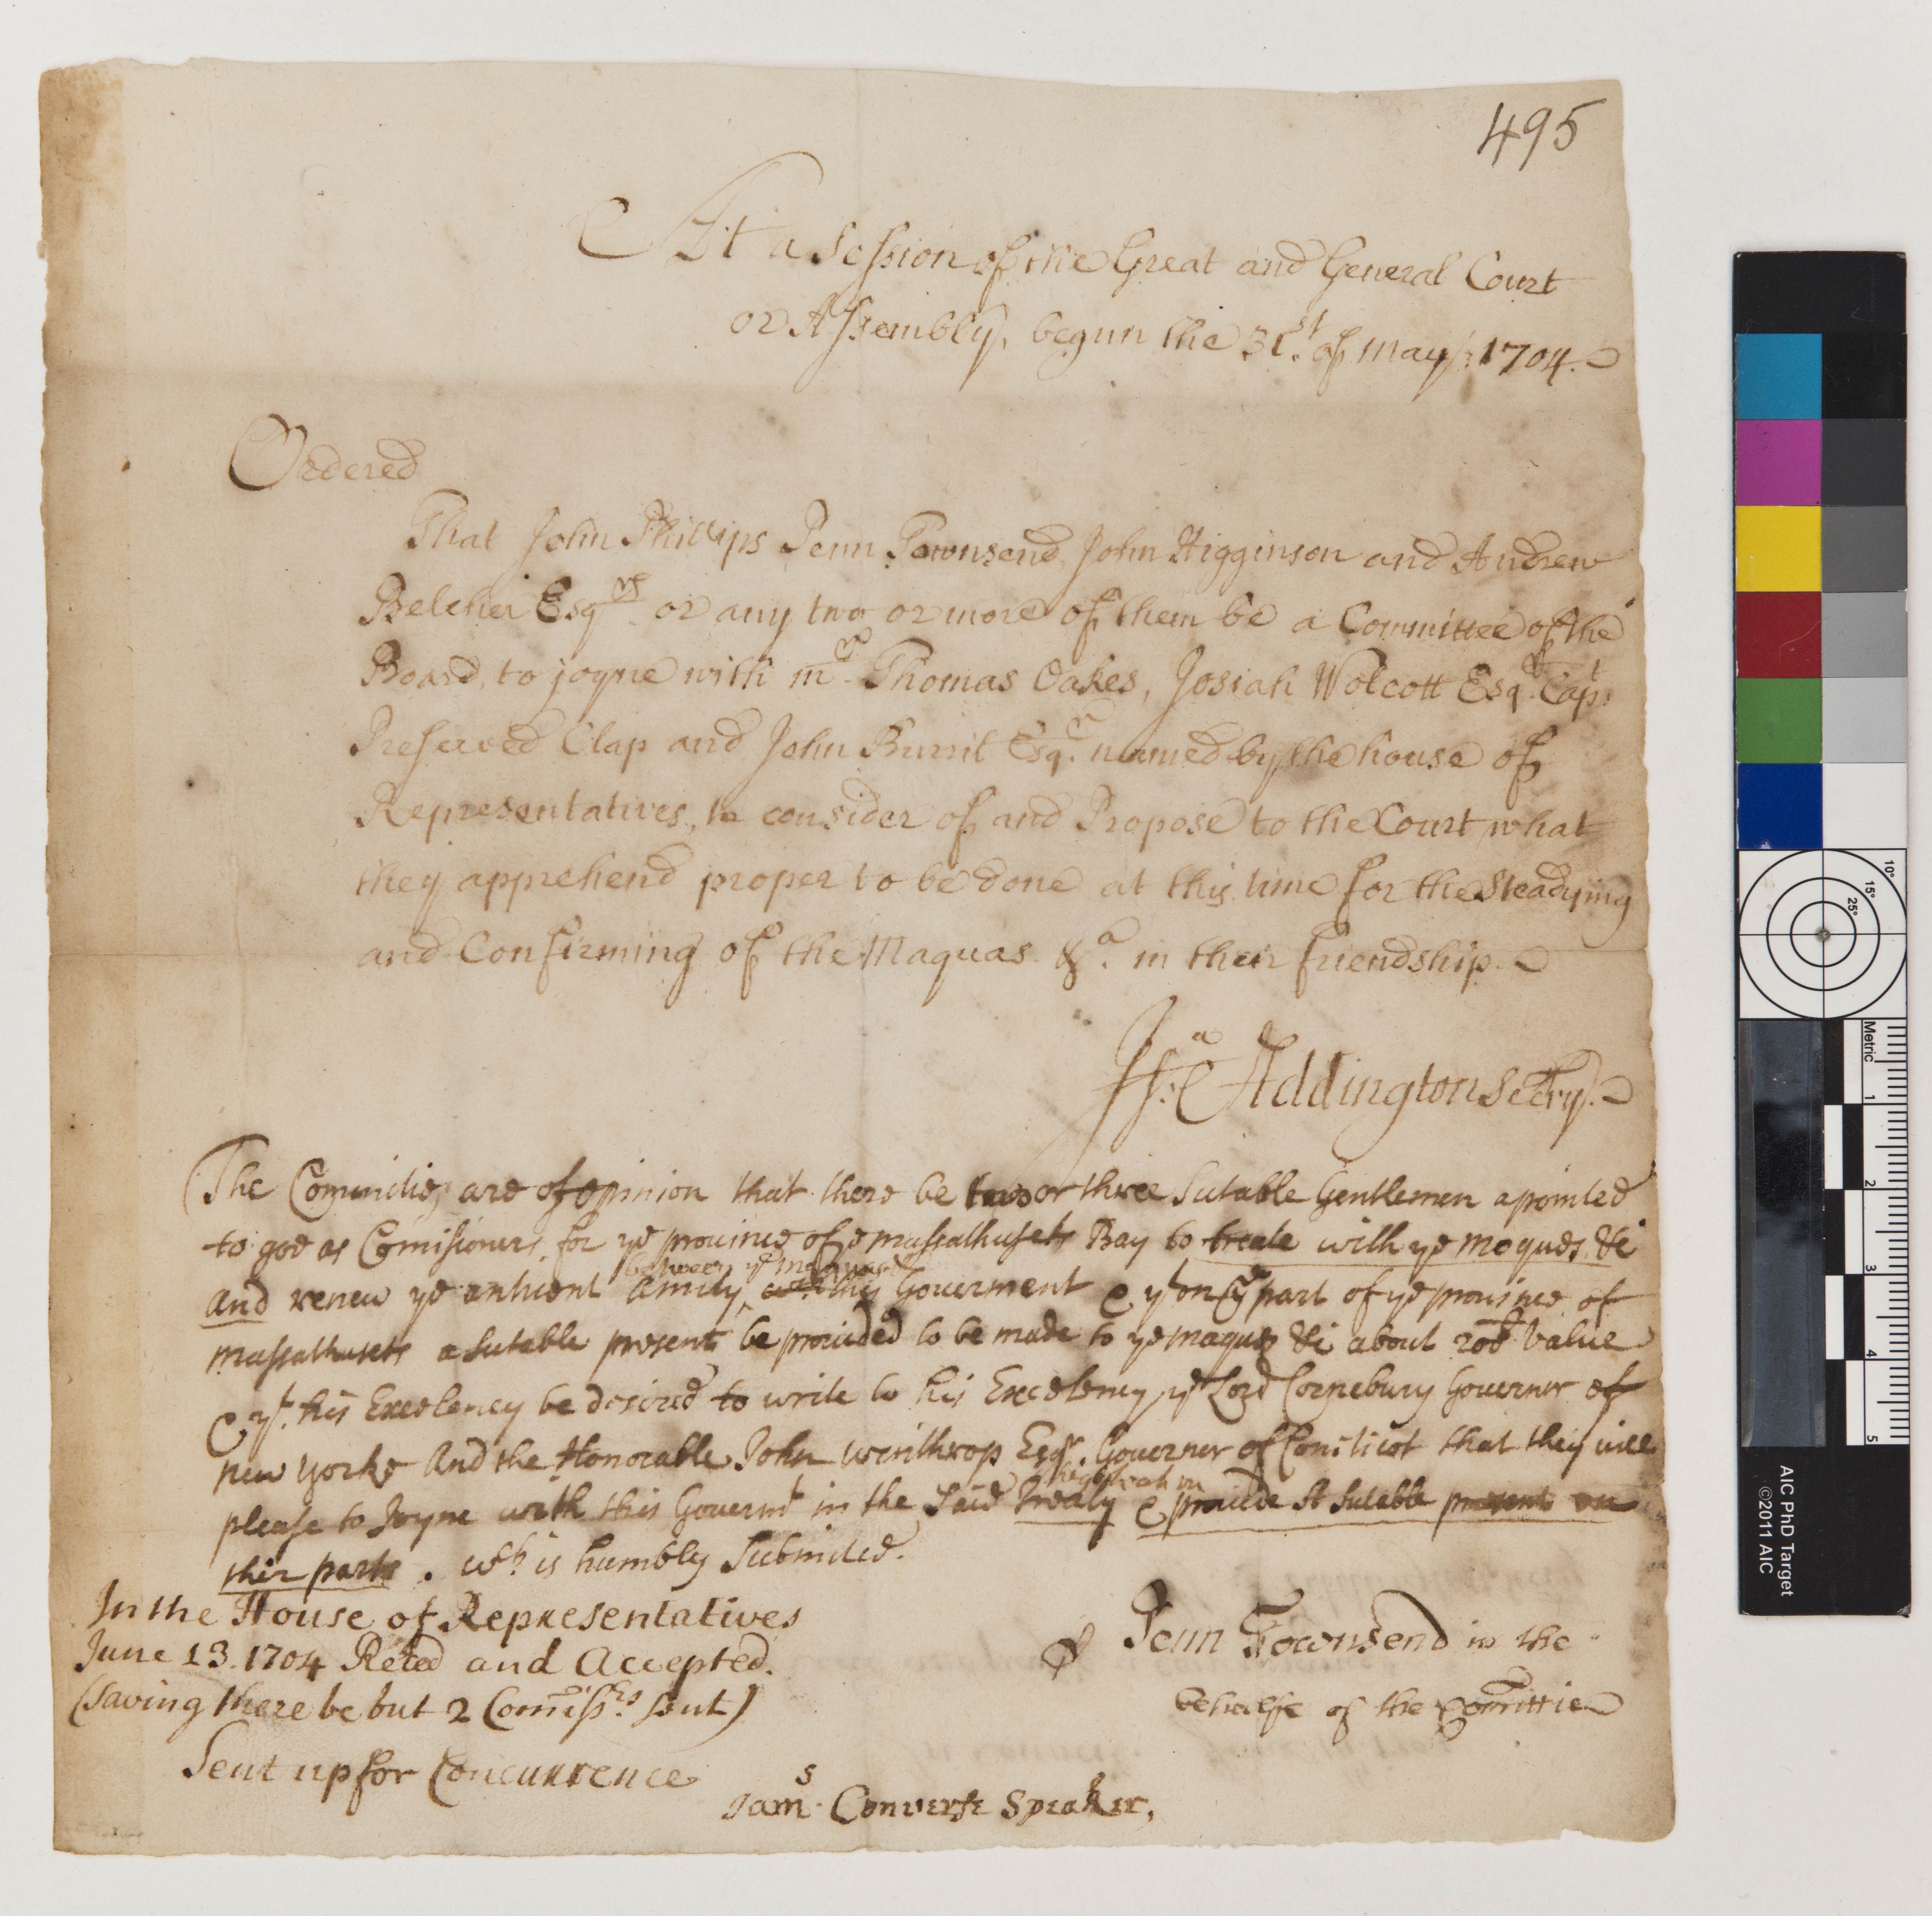 495
At a Session of the Great and General Court
or Assembly, begun the 31.st of May: 1704.
Ordered
That John Phillips Penn Townsend, John Higginson and Andrew
Belcher Esqrs or any two or more of them be a Committee of the
Board, to joyne with mr. Thomas Oakes, Josiah Wolcott Esqr. Capt.
Preserved Clap and John Burril Esqr. named by the house of
Representatives, to consider of and Propose to the Court what
they apprehend proper to be done at this time for the Steadying
and Confirming of the Maquas &a. in their friendship.
Isa: Addington Secry.
The Comittie are of opinion that there be two or three Sutable Gentlemen apointed
to goe as Comisioners for ye province of ye massathusets Bay to treate with ye moques &c
between ye maquas &
and renew ye antient Amity, this Goverment & yt on ye part of ye province of
massathusets a sutable present be provided to be made to ye maquas &c about 200£ value
& yt. his Excelency be desired to write to his Excelency ye Lord Cornebury Governer of
new yorke And the Honorable John Winthrop Esqr. Governer of Coneticot that they will
please to Joyne with this Governt in the Said Treaty & provide A sutable present on
thir parts. wch. is humbly Submited.
In the House of Representatives
June 13. 1704 Read and Accepted.
(saving there be but 2 Comissrs. sent)
Sent up for Concurrence
Penn Townsend in the
behalfe of the Comittie
Jams. Converse Speaker,
Metric
1
2
3
4
5
10°
15°
25°
AIC PhD Target
©2011 AIC